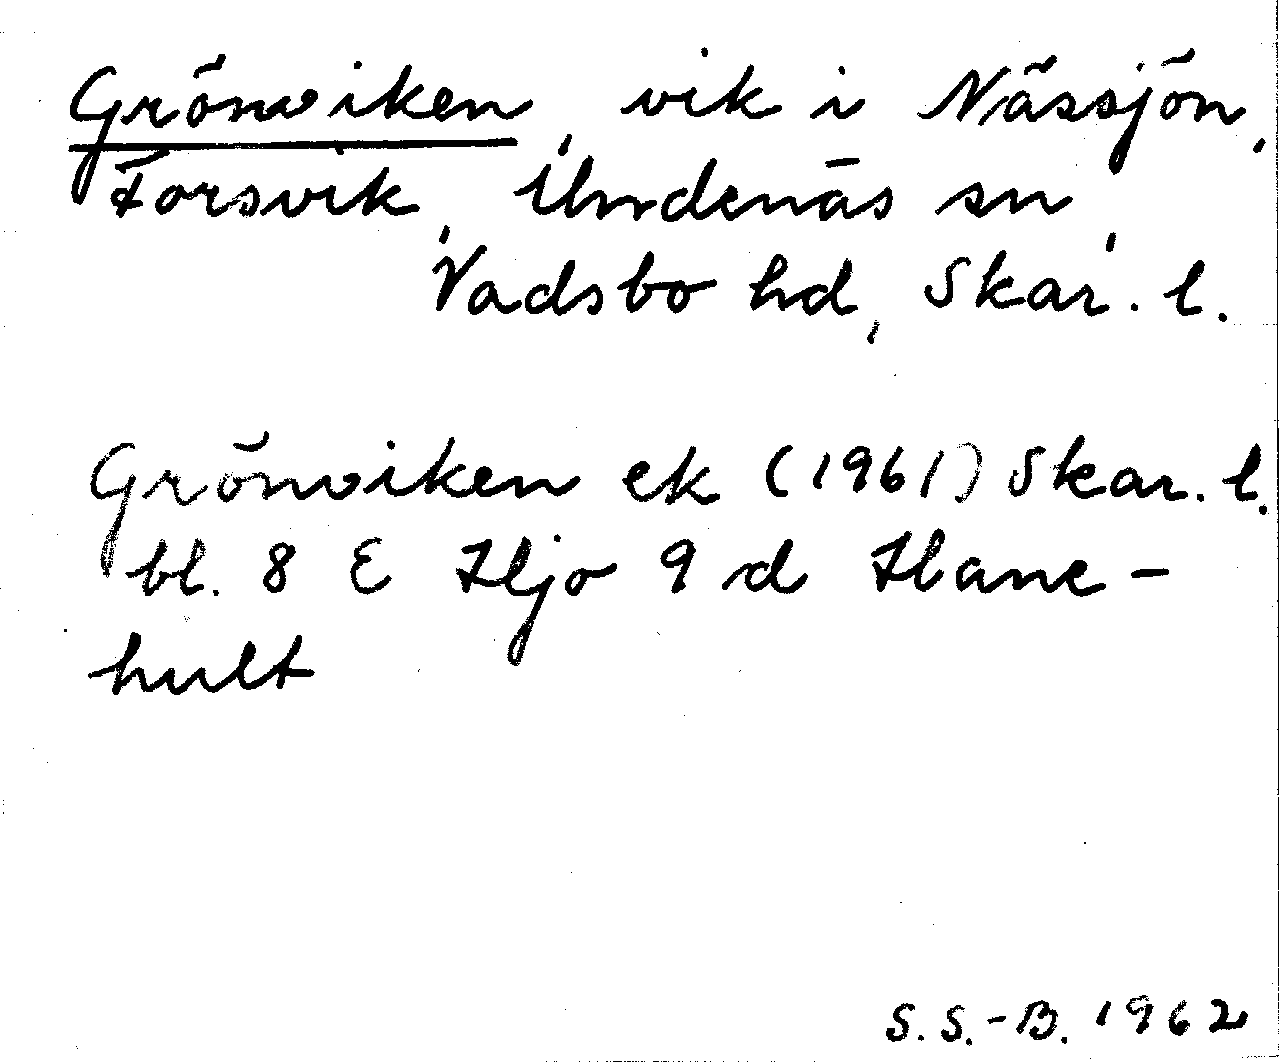 Grönviken, vik i Nässjön,
Forsvik, Undenäs sn,
Vadsbo hd, Skar. l.
Grönviken ek (1961) Skar. l.
bl. 8 E Hjo 9 d Hane-
hult
S. S.-B. 1962